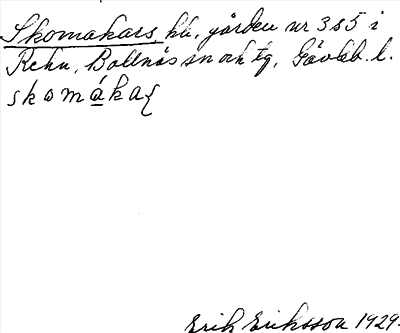 Skomakars, hu, gården nr 385 i
Rehn, Bollnäs sn och tg, Gävleb. l.
skomáka
Erik Eriksson 1929.